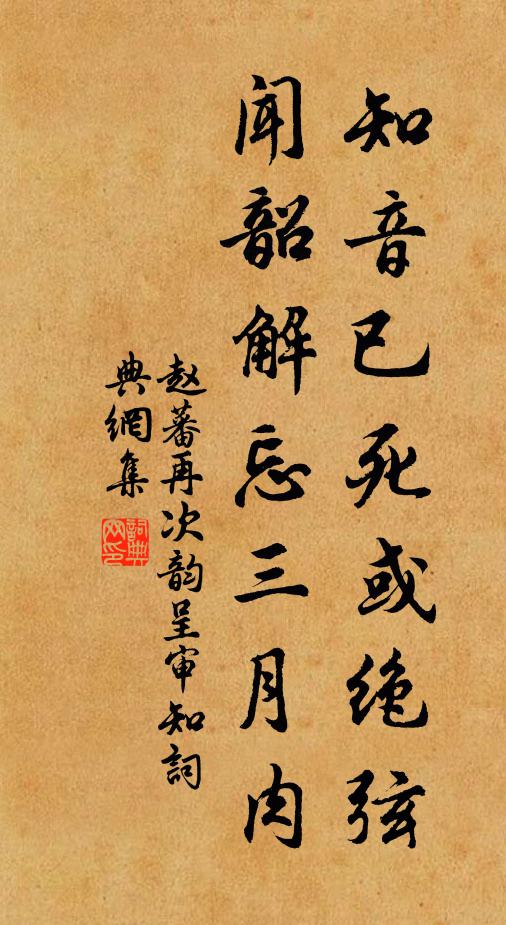 知音已死或绝弦
闻韶解忘三月肉
赵蕃再次韵呈审知詞
典網集
詞典网印